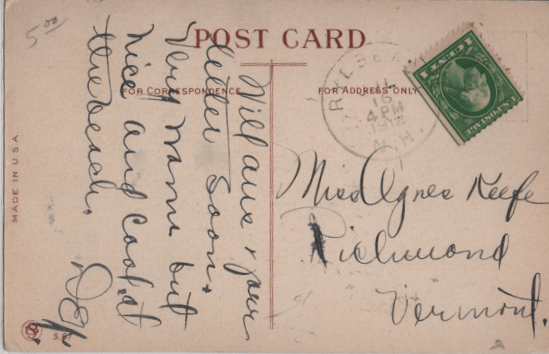 5.00
POST CARD
FOR CORRESPONDENCE
FOR ADDRESS ONLY
MADE IN U.S.A
Will ans your
letter soon.
Very warm but
nice and cool at
the beach.
11
16
4 PM
1912
N.H.
Miss Agnes Keefe
Richmond
Vermont.